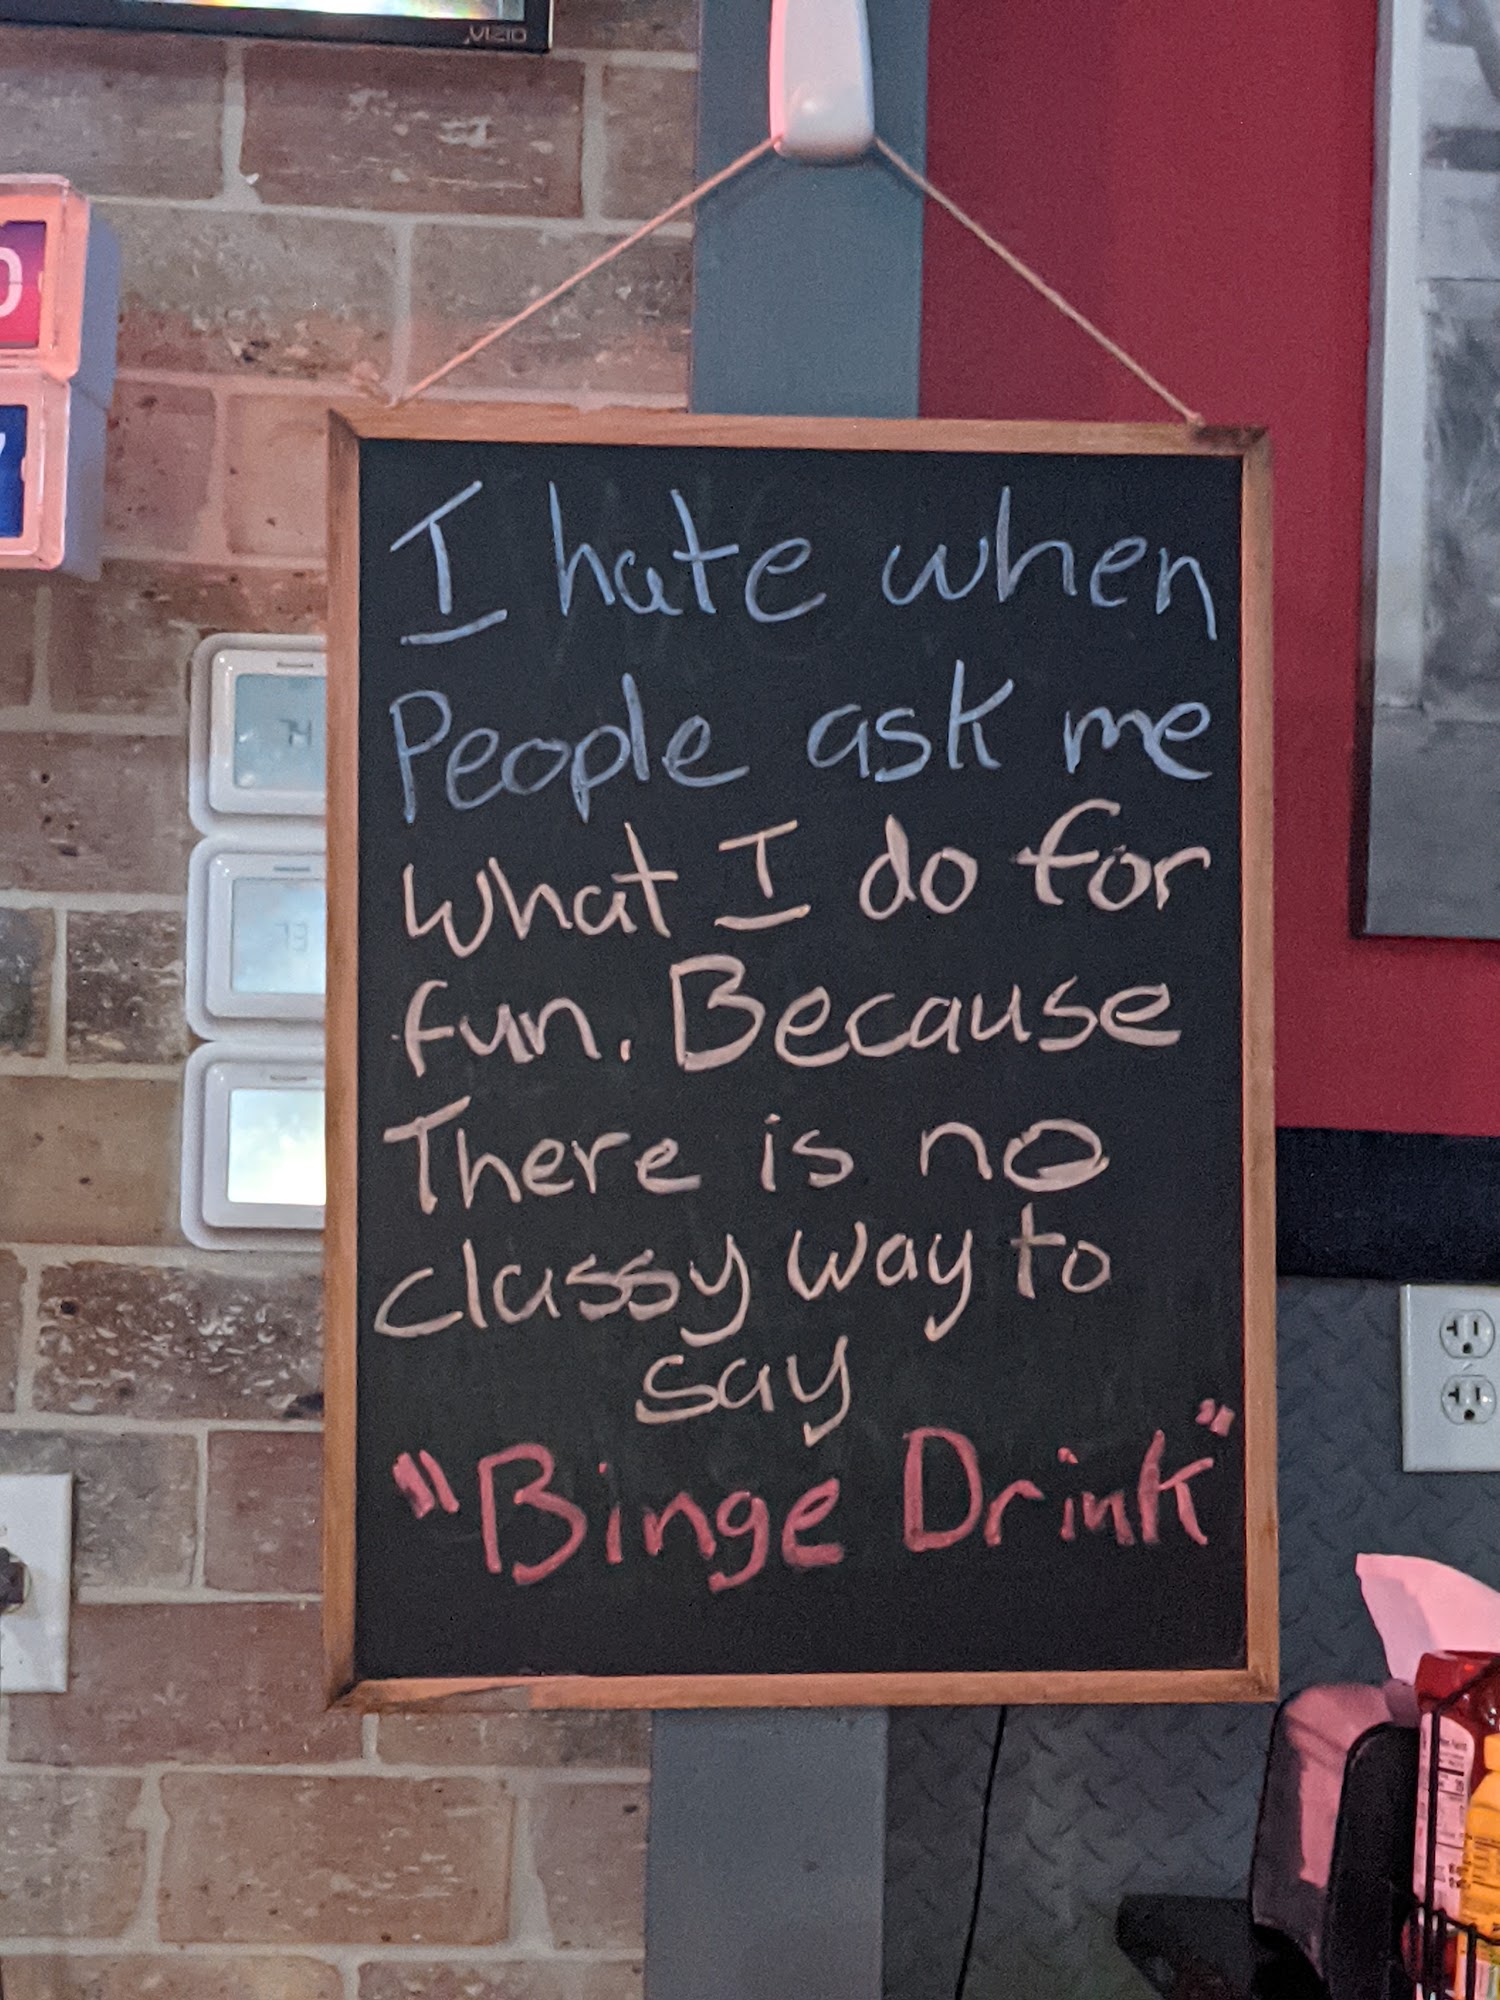 VIZIO
0
7
74
73
I hate when
People ask me
what I do for
fun. Because
There is no
classy way to
say
"Binge Drink"